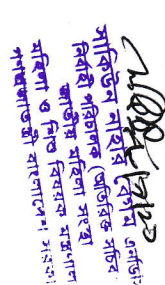 সাকিউন নাহার বেগম এনডিসি
নির্বাহী পরিচালক (অতিরিক্ত সচিব
জাতীয় মহিলা সংস্থা
মহিলা ও শিশু বিষয়ক মন্ত্রণালয়
গণপ্রজাতন্ত্রী বাংলাদেশ